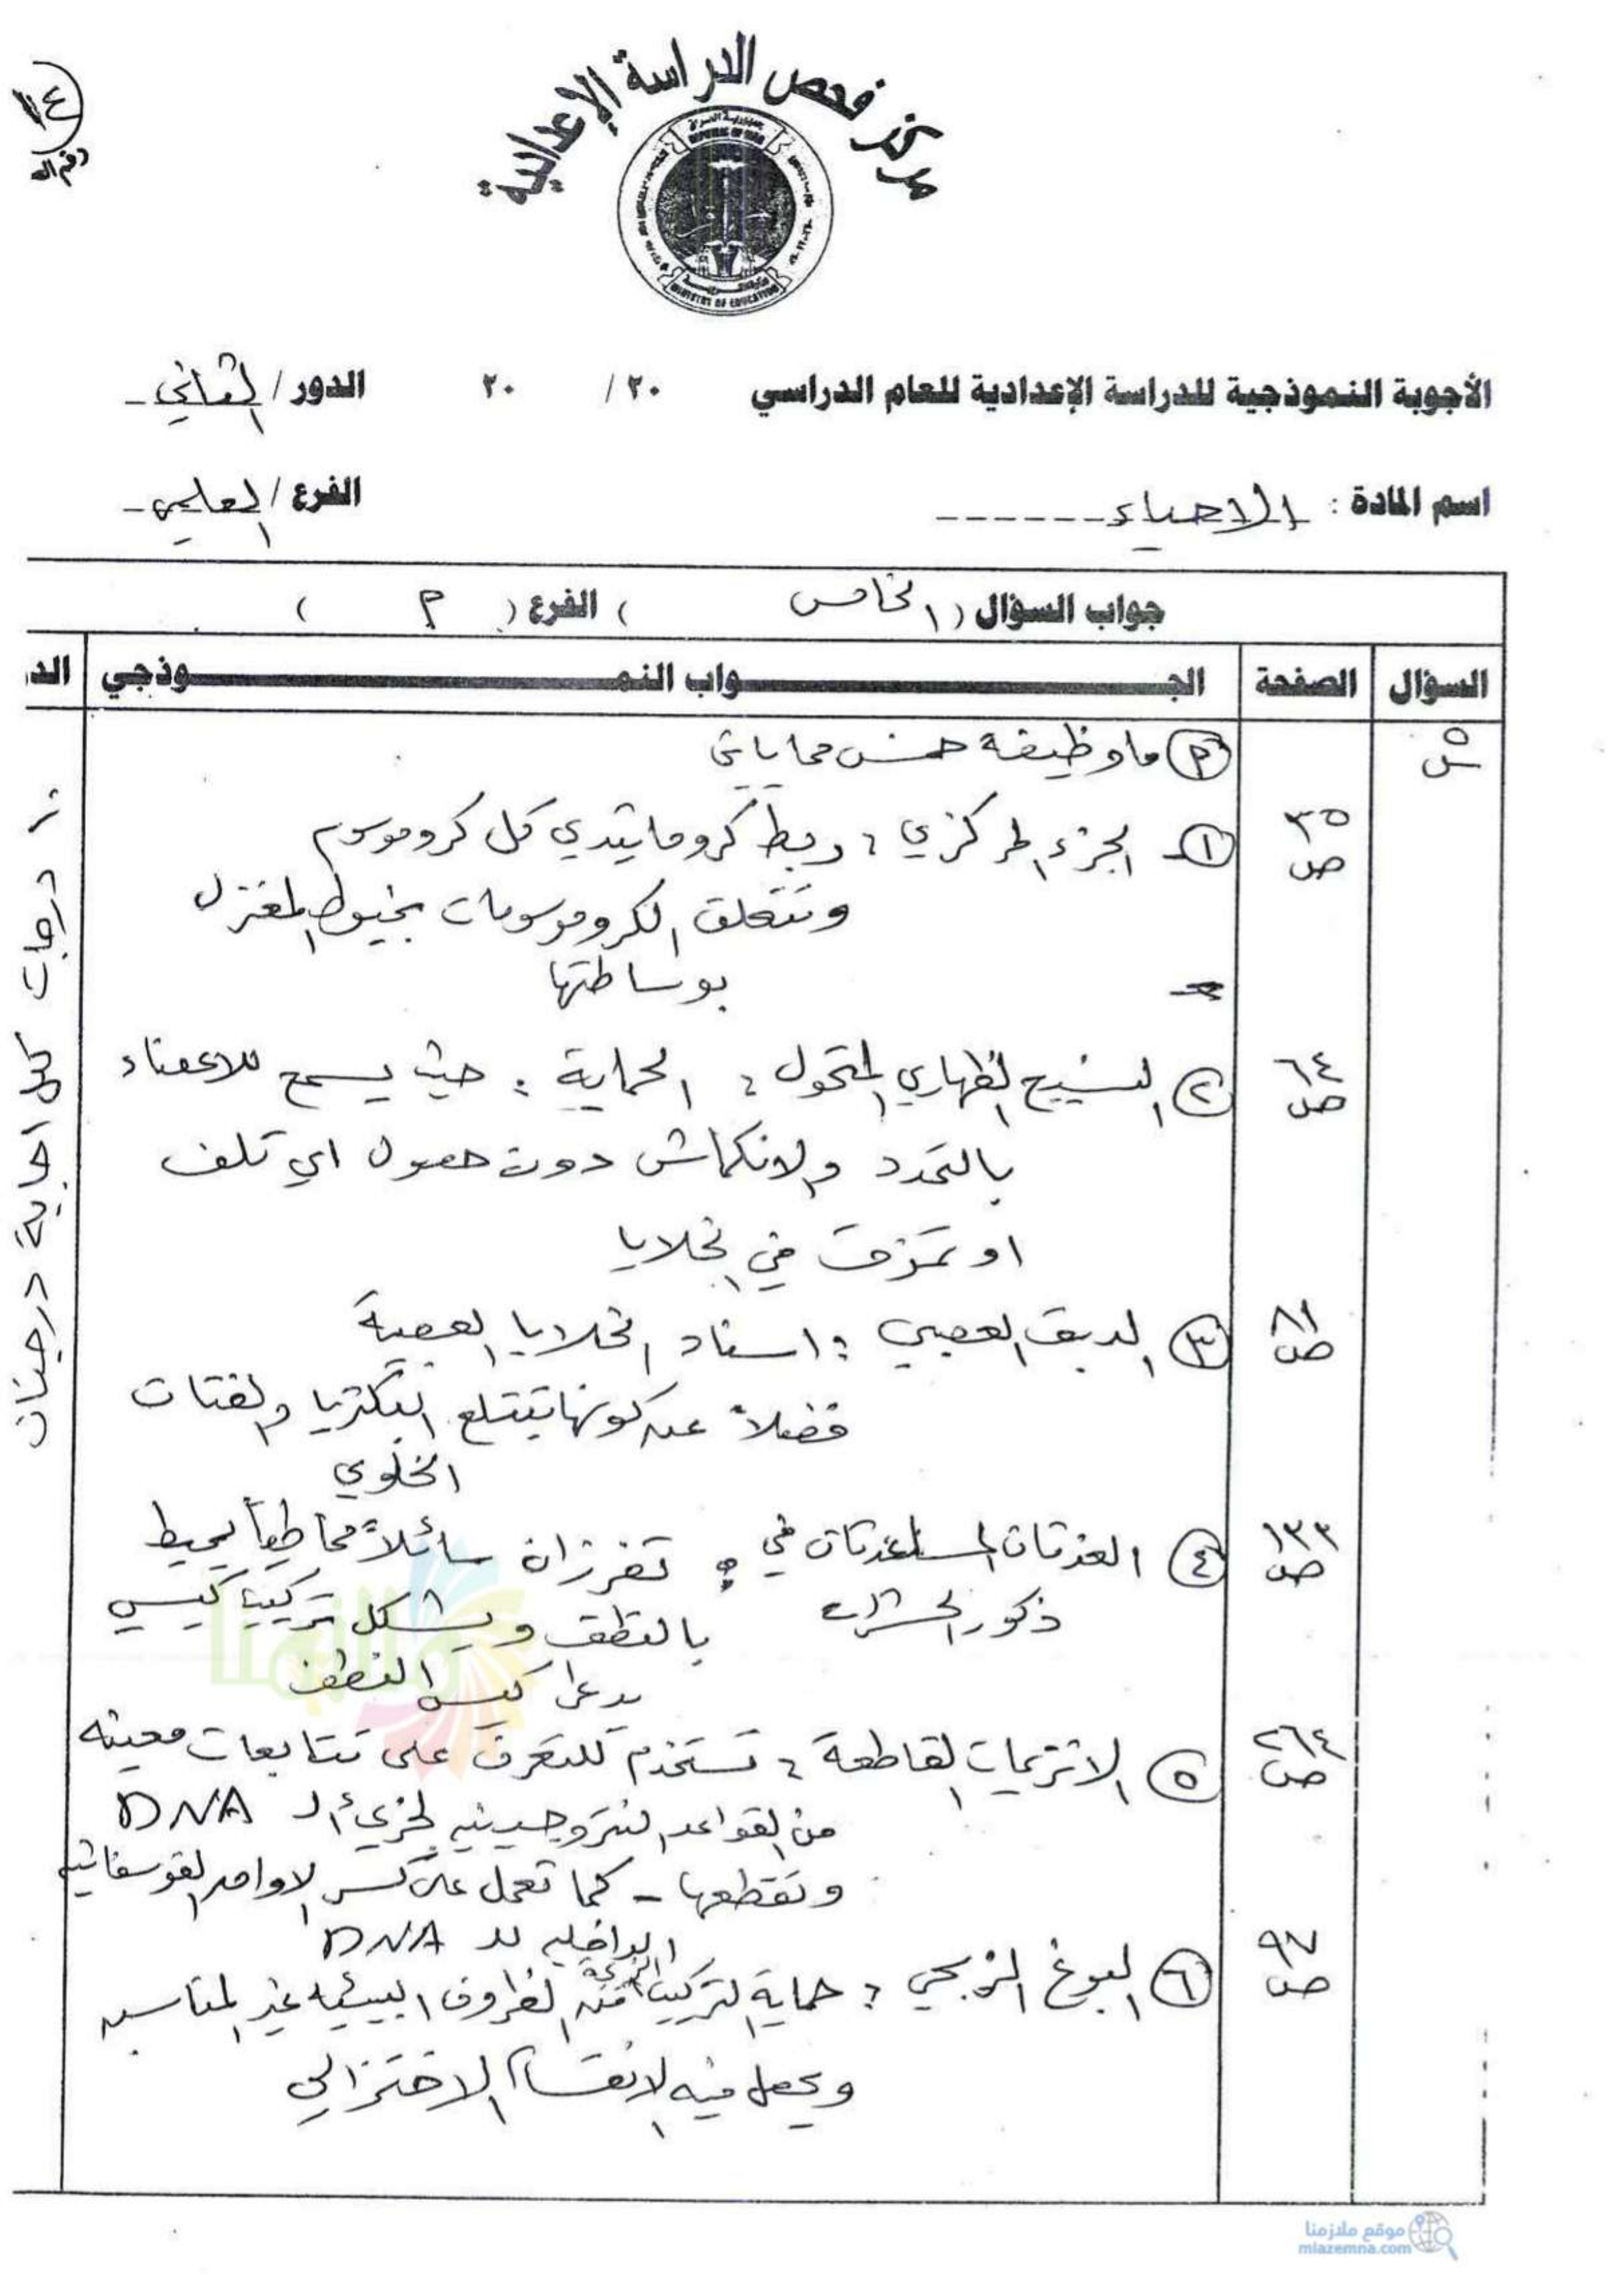 ١٤
رقم الد
مركز فحص الدراسة الإعدادية
جمهورية العراق
REPUBLIC OF IRAQ
MINISTRY OF EDUCATION
الأجوبة النموذجية للدراسة الإعدادية للعام الدراسي ٢٠ / ٢٠ الدور / الثاني
اسم المادة : الاحياء الفرع / العلمي
جواب السؤال ( الخامس ) الفرع ( م )
السؤال الصفحة الجـواب النمـوذجي الد
س٥ م ما وظيفة خمس مما يأتي
ص٣٥ ١- الجزء المركزي : ربط كروماتيدي كل كروموسوم
وتتعلق الكروموسومات بخيوط المغزل
بوساطتها
ص٦٤ ٢ النسيج الظهاري المتحول : الحماية : حيث يسمح للاعضاء
بالتمدد والانكماش دون حصول اي تلف
او تمزق في الخلايا
ص٨١ ٣ الدبق العصبي : اسناد الخلايا العصبية
فضلاً عن كونها تبتلع البكتريا والفتات
الخلوي
ص١٣٣ ٤ الغدتان المساعدتان في : تفرزان سائلاً مخاطياً يحيط
ذكور الحشرات بالنطف ويشكل تركيب كيسي
يدعى كيس النطف
ص٢٦٤ ٥ الانزيمات القاطعة : تستخدم للتعرف على تتابعات معينه
من القواعد النتروجينيه لجزيء الـ DNA
وتقطعها - كما تعمل على كسر الاواصر الفوسفاتيه
الداخليه للـ DNA
ص٩٧ ٦ البوغ الزيجي : حماية التركيب من الظروف البيئيه غير المناسبه
ويحصل فيه الانقسام الاختزالي
١٠ درجات لكل اجابة درجتان
موقع ملازمنا
mlazemna.com